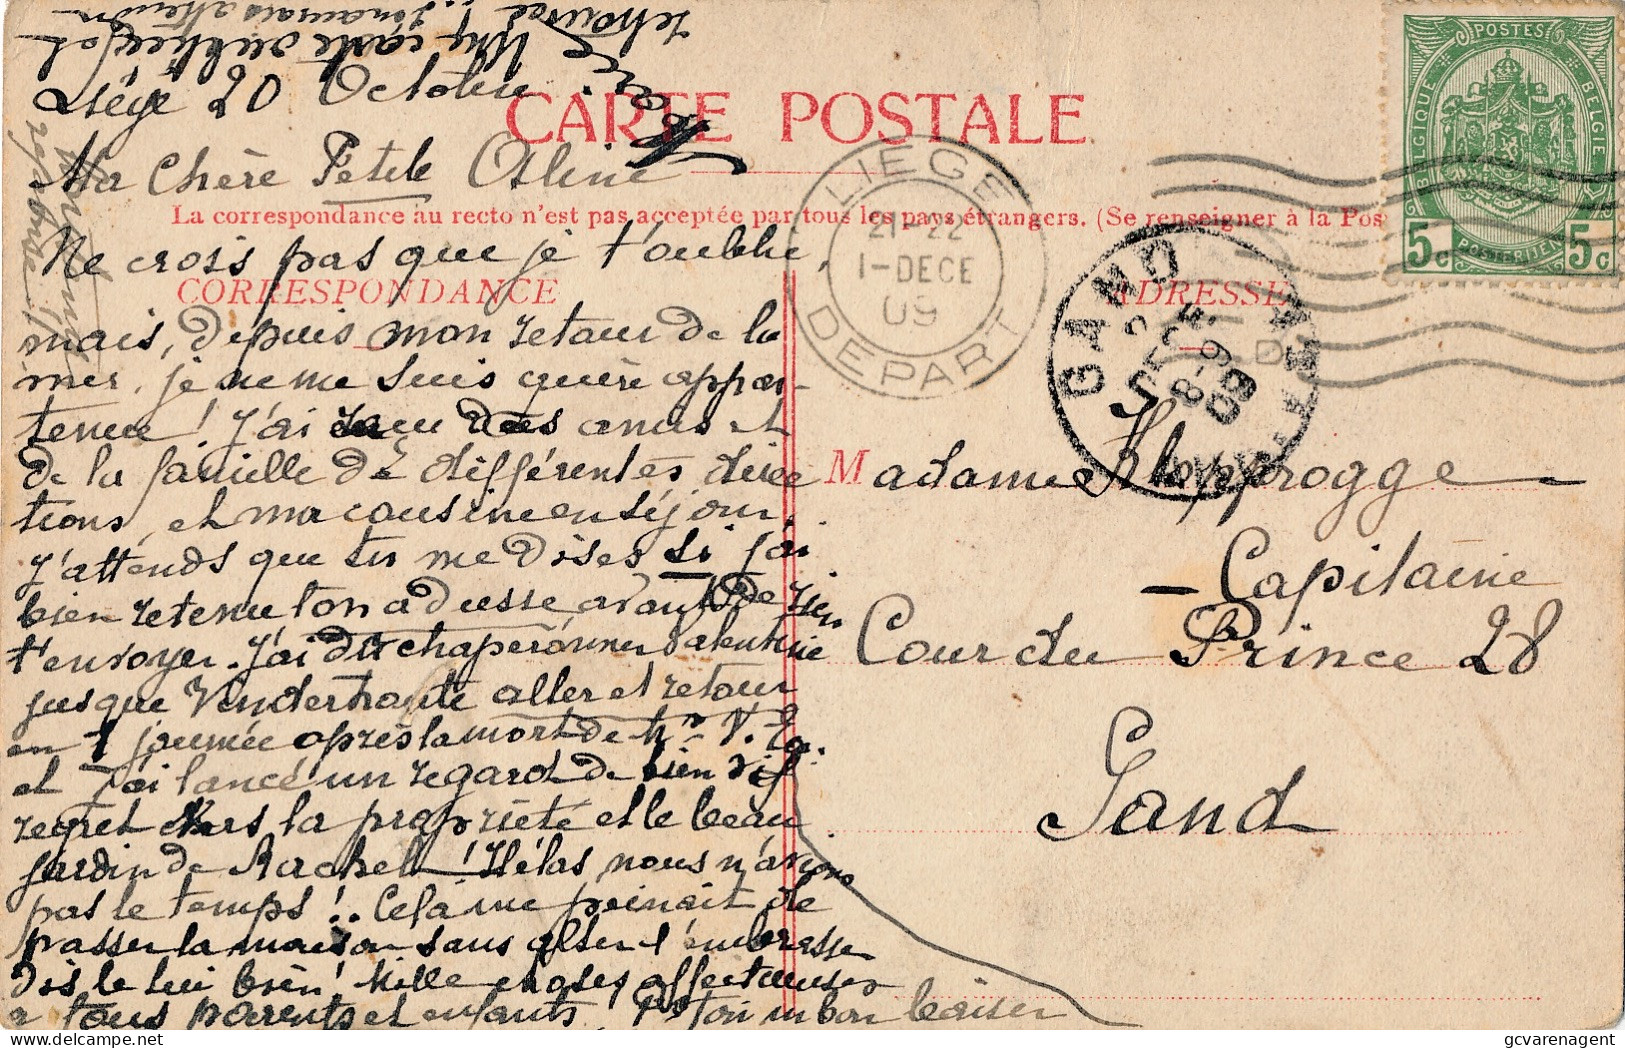 CARTE POSTALE
La correspondance au recto n'est pas acceptée par tous les pays étrangers. (Se renseigner à la Pos
CORRESPONDANCE
ADRESSE
POSTES
BELGIQUE
BELGIE
5c
5c
LIEGE
21-22
1-DECE
09
DEPART
GAND
2
DECE
8-9
09
Liége 20 Octobre
Ma Chère Petite Aline
Ne crois pas que je t'oublie,
mais, depuis mon retour de la
mer, je ne me suis guère appar-
tenue! J'ai reçu des amis et
de la famille de différentes direc
tions, et ma cousine en séjour.
J'attends que tu me dises si j'ai
bien retenu ton adresse avant de rien
t'envoyer. J'ai dû chaperonner Valentine
jusque aller et retour
en 1 journée après la mort de Mr V.
et j'ai lancé un regard de bien vif
regret vers la propriété et le beau
jardin de Rachel! Hélas, nous n'avions
pas le temps!.. Cela me peinait de
passer la maison sans aller l'embrasser
dis le lui bien! Mille choses affectueuses
à tous parents et enfants! à toi un bon baiser
réponse
Madame Klopprogge
- Capitaine
Cour du Prince 28
Gand
gcvarenagent